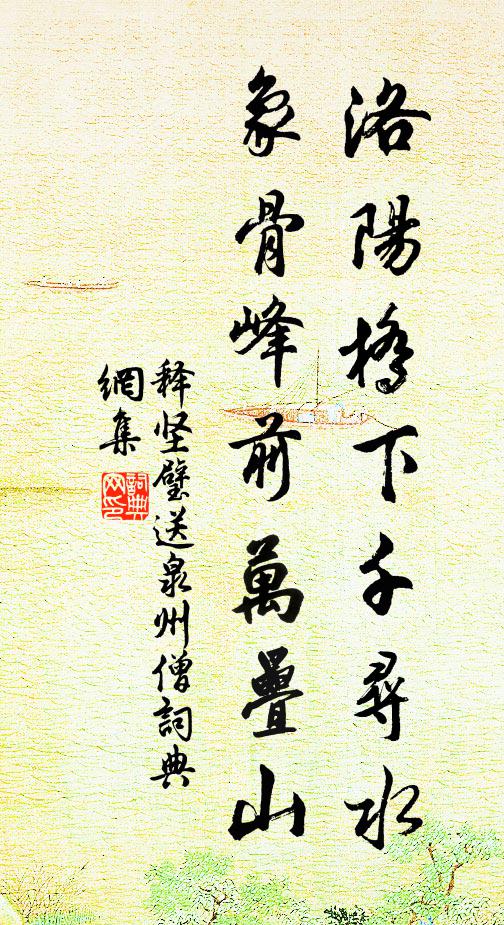 洛陽橋下千尋水
象骨峰前萬疊山
释坚璧送泉州僧詞典
網集
詞典
网印